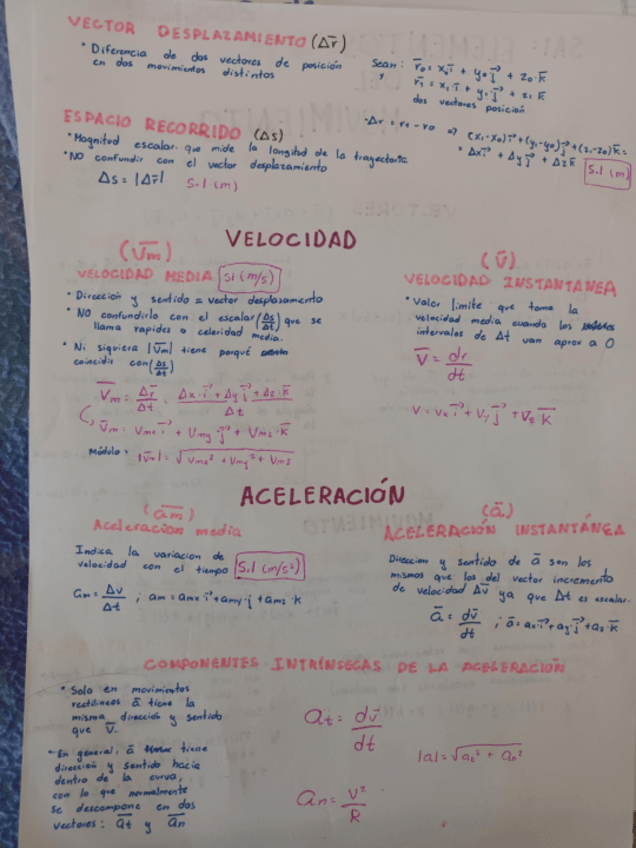 VECTOR DESPLAZAMIENTO (Δr̄)
• Diferencia de dos vectores de posición
en dos movimientos distintos
Sean: r̄₀ = x₀ī + y₀j̄ + z₀·k̄
y r̄₁ = x₁ī + y₁j̄ + z₁ k̄
dos vectores posición
·Δr = r₁ - r₀ => (x₁-x₀)i⃗+(y₁-y₀)j⃗+(z₁-z₀)k̄ =
= Δxi⃗ + Δyj⃗ + Δzk̄
S.I (m)
ESPACIO RECORRIDO (Δs)
• Magnitud escalar que mide la longitud de la trayectoria
• NO confundir con el vector desplazamiento
Δs = |Δr̄| S.I (m)
VELOCIDAD
(V̄m)
VELOCIDAD MEDIA SI (m/s)
• Dirección y sentido = vector desplazamiento
• NO confundirlo con el escalar (Δs/Δt) que se
llama rapidez o celeridad media.
• Ni siquiera |V̄m| tiene porqué
coincidir con (Δs/Δt)
V̄m = Δr̄/Δt = Δx·i⃗ + Δy j⃗ + Δz·k̄/Δt
v̄m = Vmx i⃗ + Vmy·j⃗ + Vmz·k̄
Módulo = |v̄m| = √Vmx² + Vmy² + Vmz
(v̄)
VELOCIDAD INSTANTANEA
• Valor limite que toma la
velocidad media cuando los
intervalos de Δt van aprox a 0
V̄ = dr/dt
V = Vx i⃗ + Vy j⃗ + Vz k̄
ACELERACIÓN
(am)
Aceleracion media
Indica la variacion de
velocidad con el tiempo S.I (m/s²)
am = Δv/Δt ; am = amx i⃗ + amy·j + amz·k
(ā)
ACELERACIÓN INSTANTÁNEA
Direccion y sentido de ā son los
mismos que los del vector incremento
de velocidad Δv̄ ya que Δt es escalar.
ā = dv̄/dt ; ā = ax i⃗ + ay j⃗ + az·k̄
COMPONENTES INTRÍNSECAS DE LA ACELERACIÓN
• Solo en movimientos
rectilineos ā tiene la
misma dirección y sentido
que V̄.
- En general, ā tiene
dirección y sentido hacia
dentro de la curva,
con lo que normalmente
se descompone en dos
vectores: āt y ān
at = dv̄/dt
|a| = √at² + an²
an = V²/R